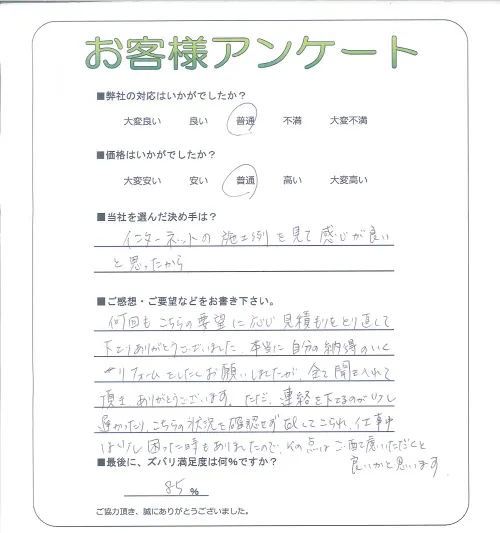 お客様アンケート
■弊社の対応はいかがでしたか？
大変良い 良い 普通 不満 大変不満
■価格はいかがでしたか？
大変安い 安い 普通 高い 大変高い
■当社を選んだ決め手は？
インターネットの施工例を見て感じが良い
と思ったから
■ご感想・ご要望などをお書き下さい。
何回もこちらの要望に応じ見積もりをとり直して
下さりありがとうございました。本当に自分の納得のいく
リフォームをしたくお願いしましたが、全て聞き入れて
頂きありがとうございます。ただ、連絡を下さるのが少し
遅かったり、こちらの状況を確認せず話してこられ、仕事中
は少し困った時もありましたので、その点はご配慮いただくと
良いかと思います
■最後に、ズバリ満足度は何％ですか？
85 %
ご協力頂き、誠にありがとうございました。